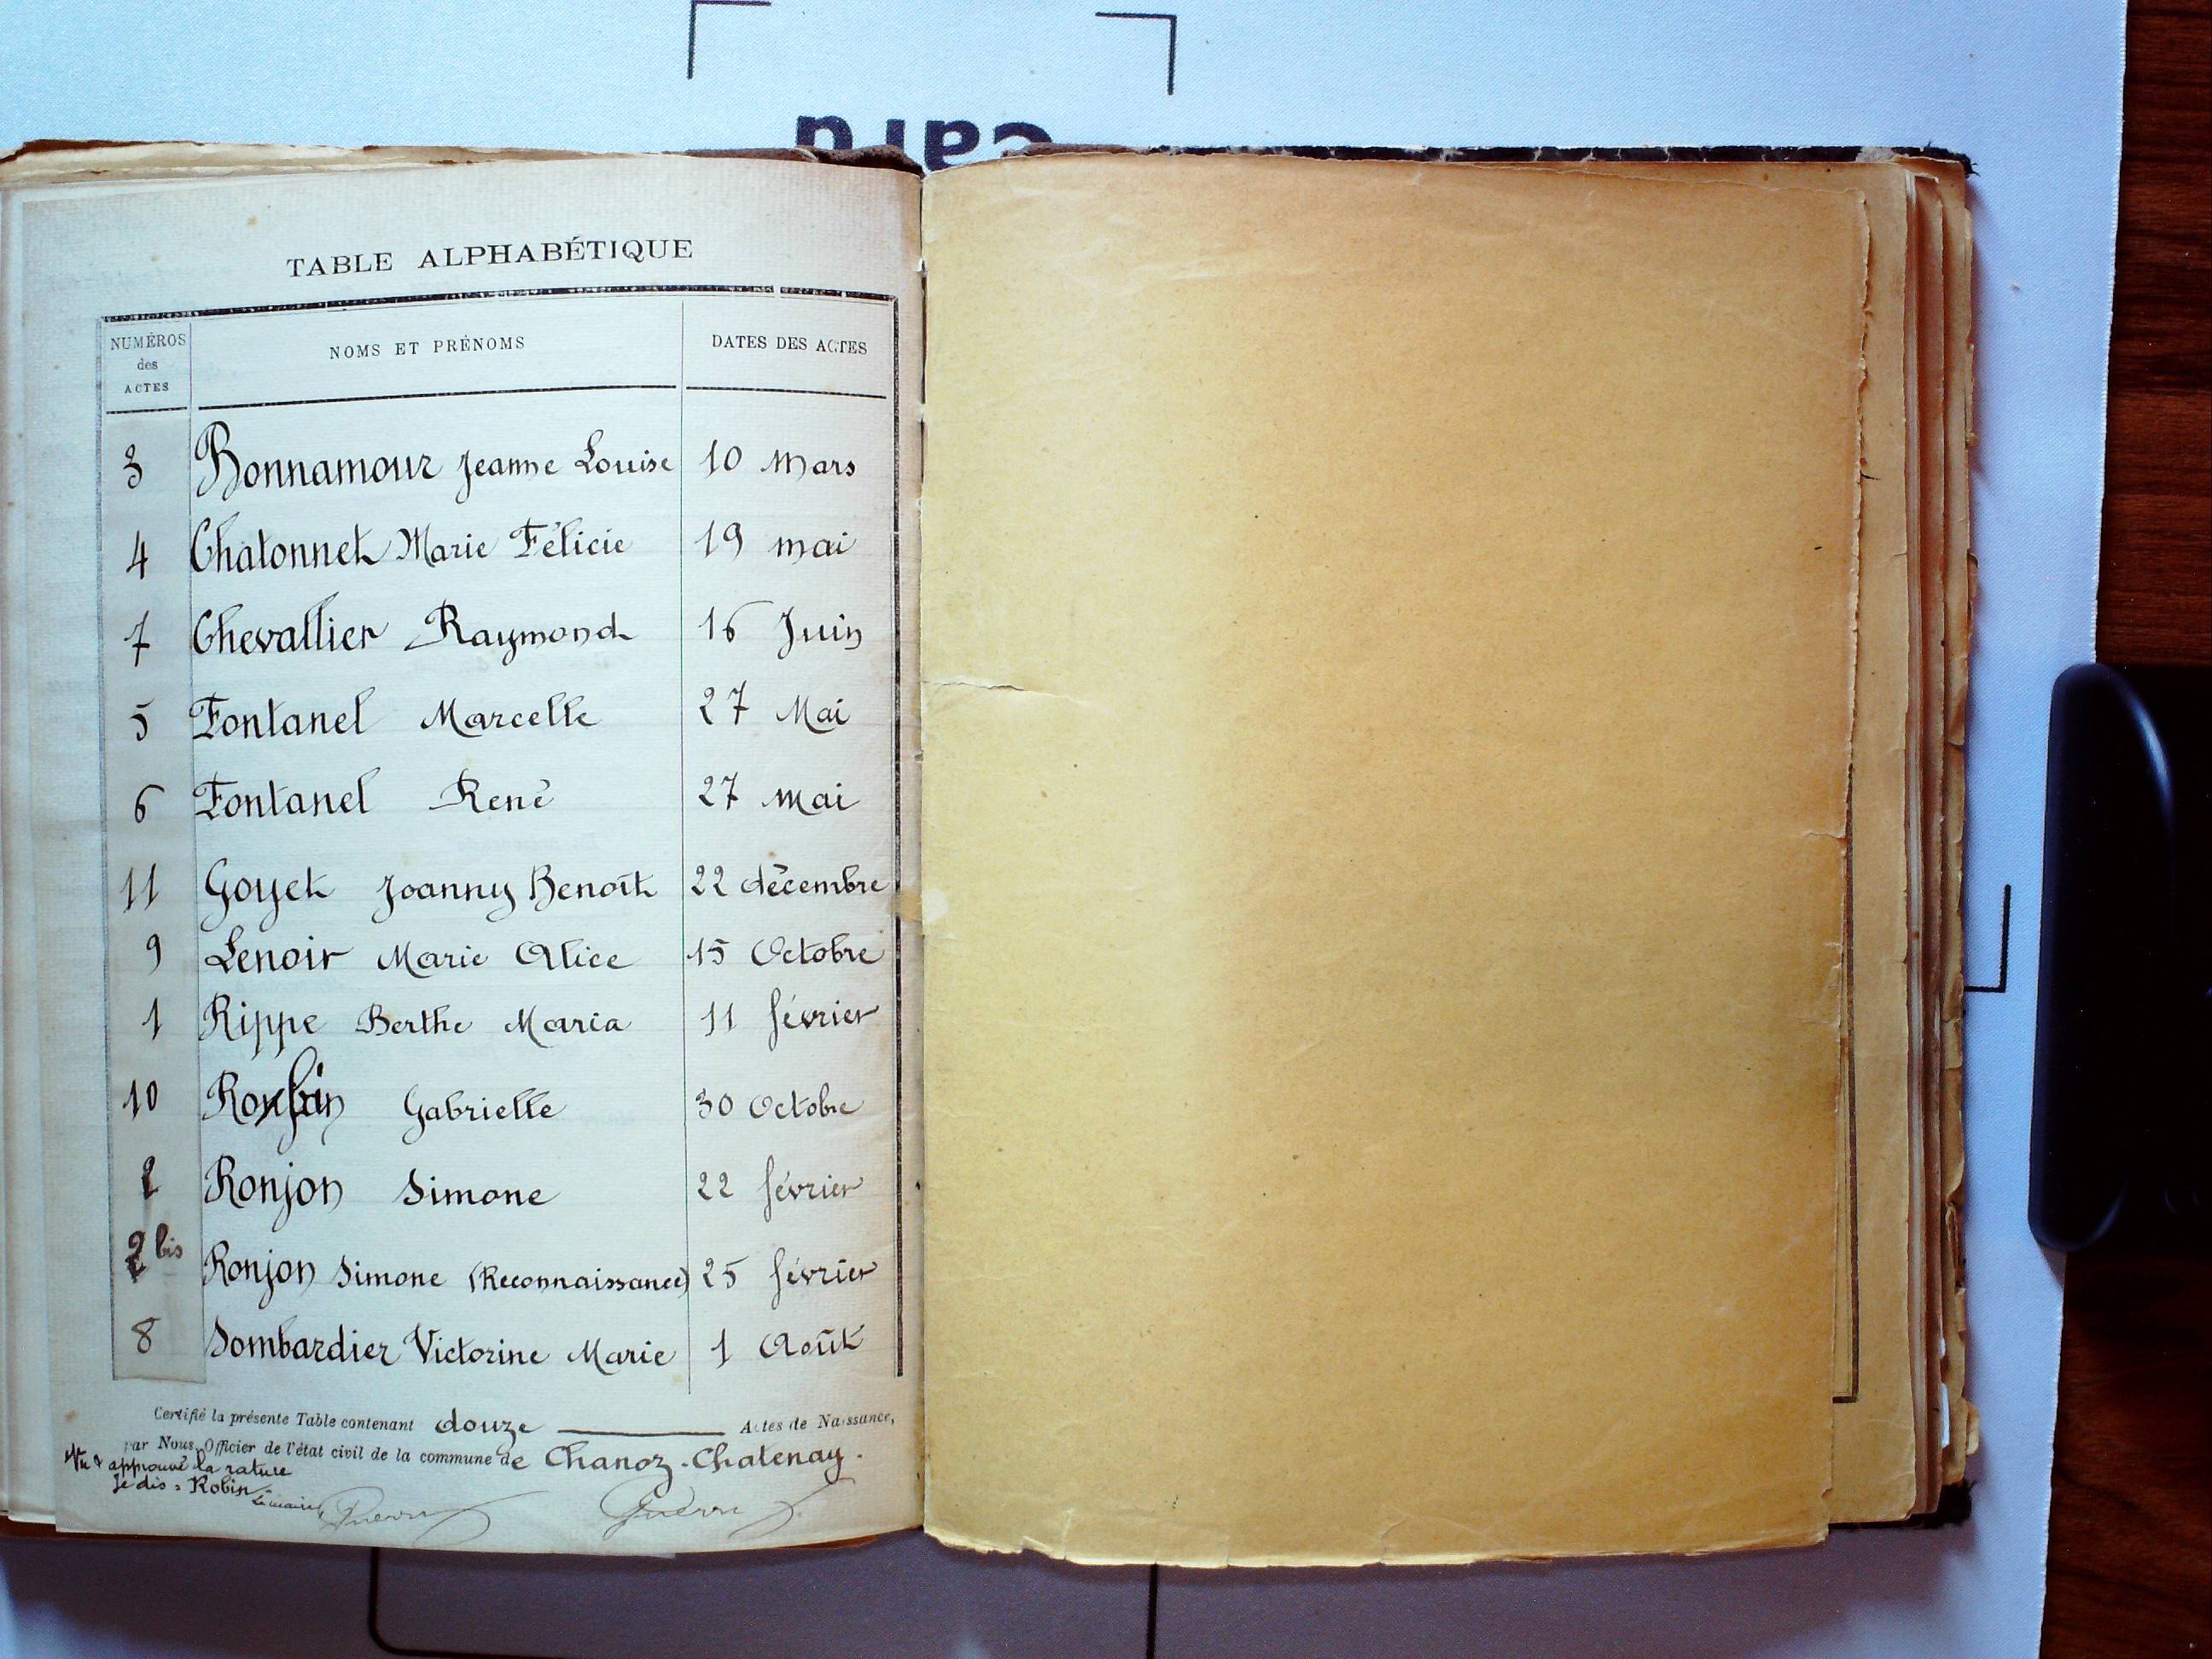 card
TABLE ALPHABÉTIQUE
NUMÉROS des ACTES NOMS ET PRÉNOMS DATES DES ACTES
3 Bonnamour Jeanne Louise 10 Mars
4 Chatonnet Marie Félicie 19 mai
7 Chevallier Raymond 16 Juin
5 Fontanel Marcelle 27 Mai
6 Fontanel René 27 Mai
11 Goyet Joanny Benoît 22 décembre
9 Lenoir Marie Alice 15 Octobre
1 Rippe Berthe Maria 11 février
10 Robin Gabrielle 30 Octobre
2 Ronjon Simone 22 février
2 bis Ronjon Simone (Reconnaissance) 25 février
8 Sombardier Victorine Marie 1 Août
Certifié la présente Table contenant douze Actes de Naissance,
par Nous, Officier de l'état civil de la commune de Chanoz-Chatenay.
Vu & approuvé la rature
Je dis : Robin
Le maire,